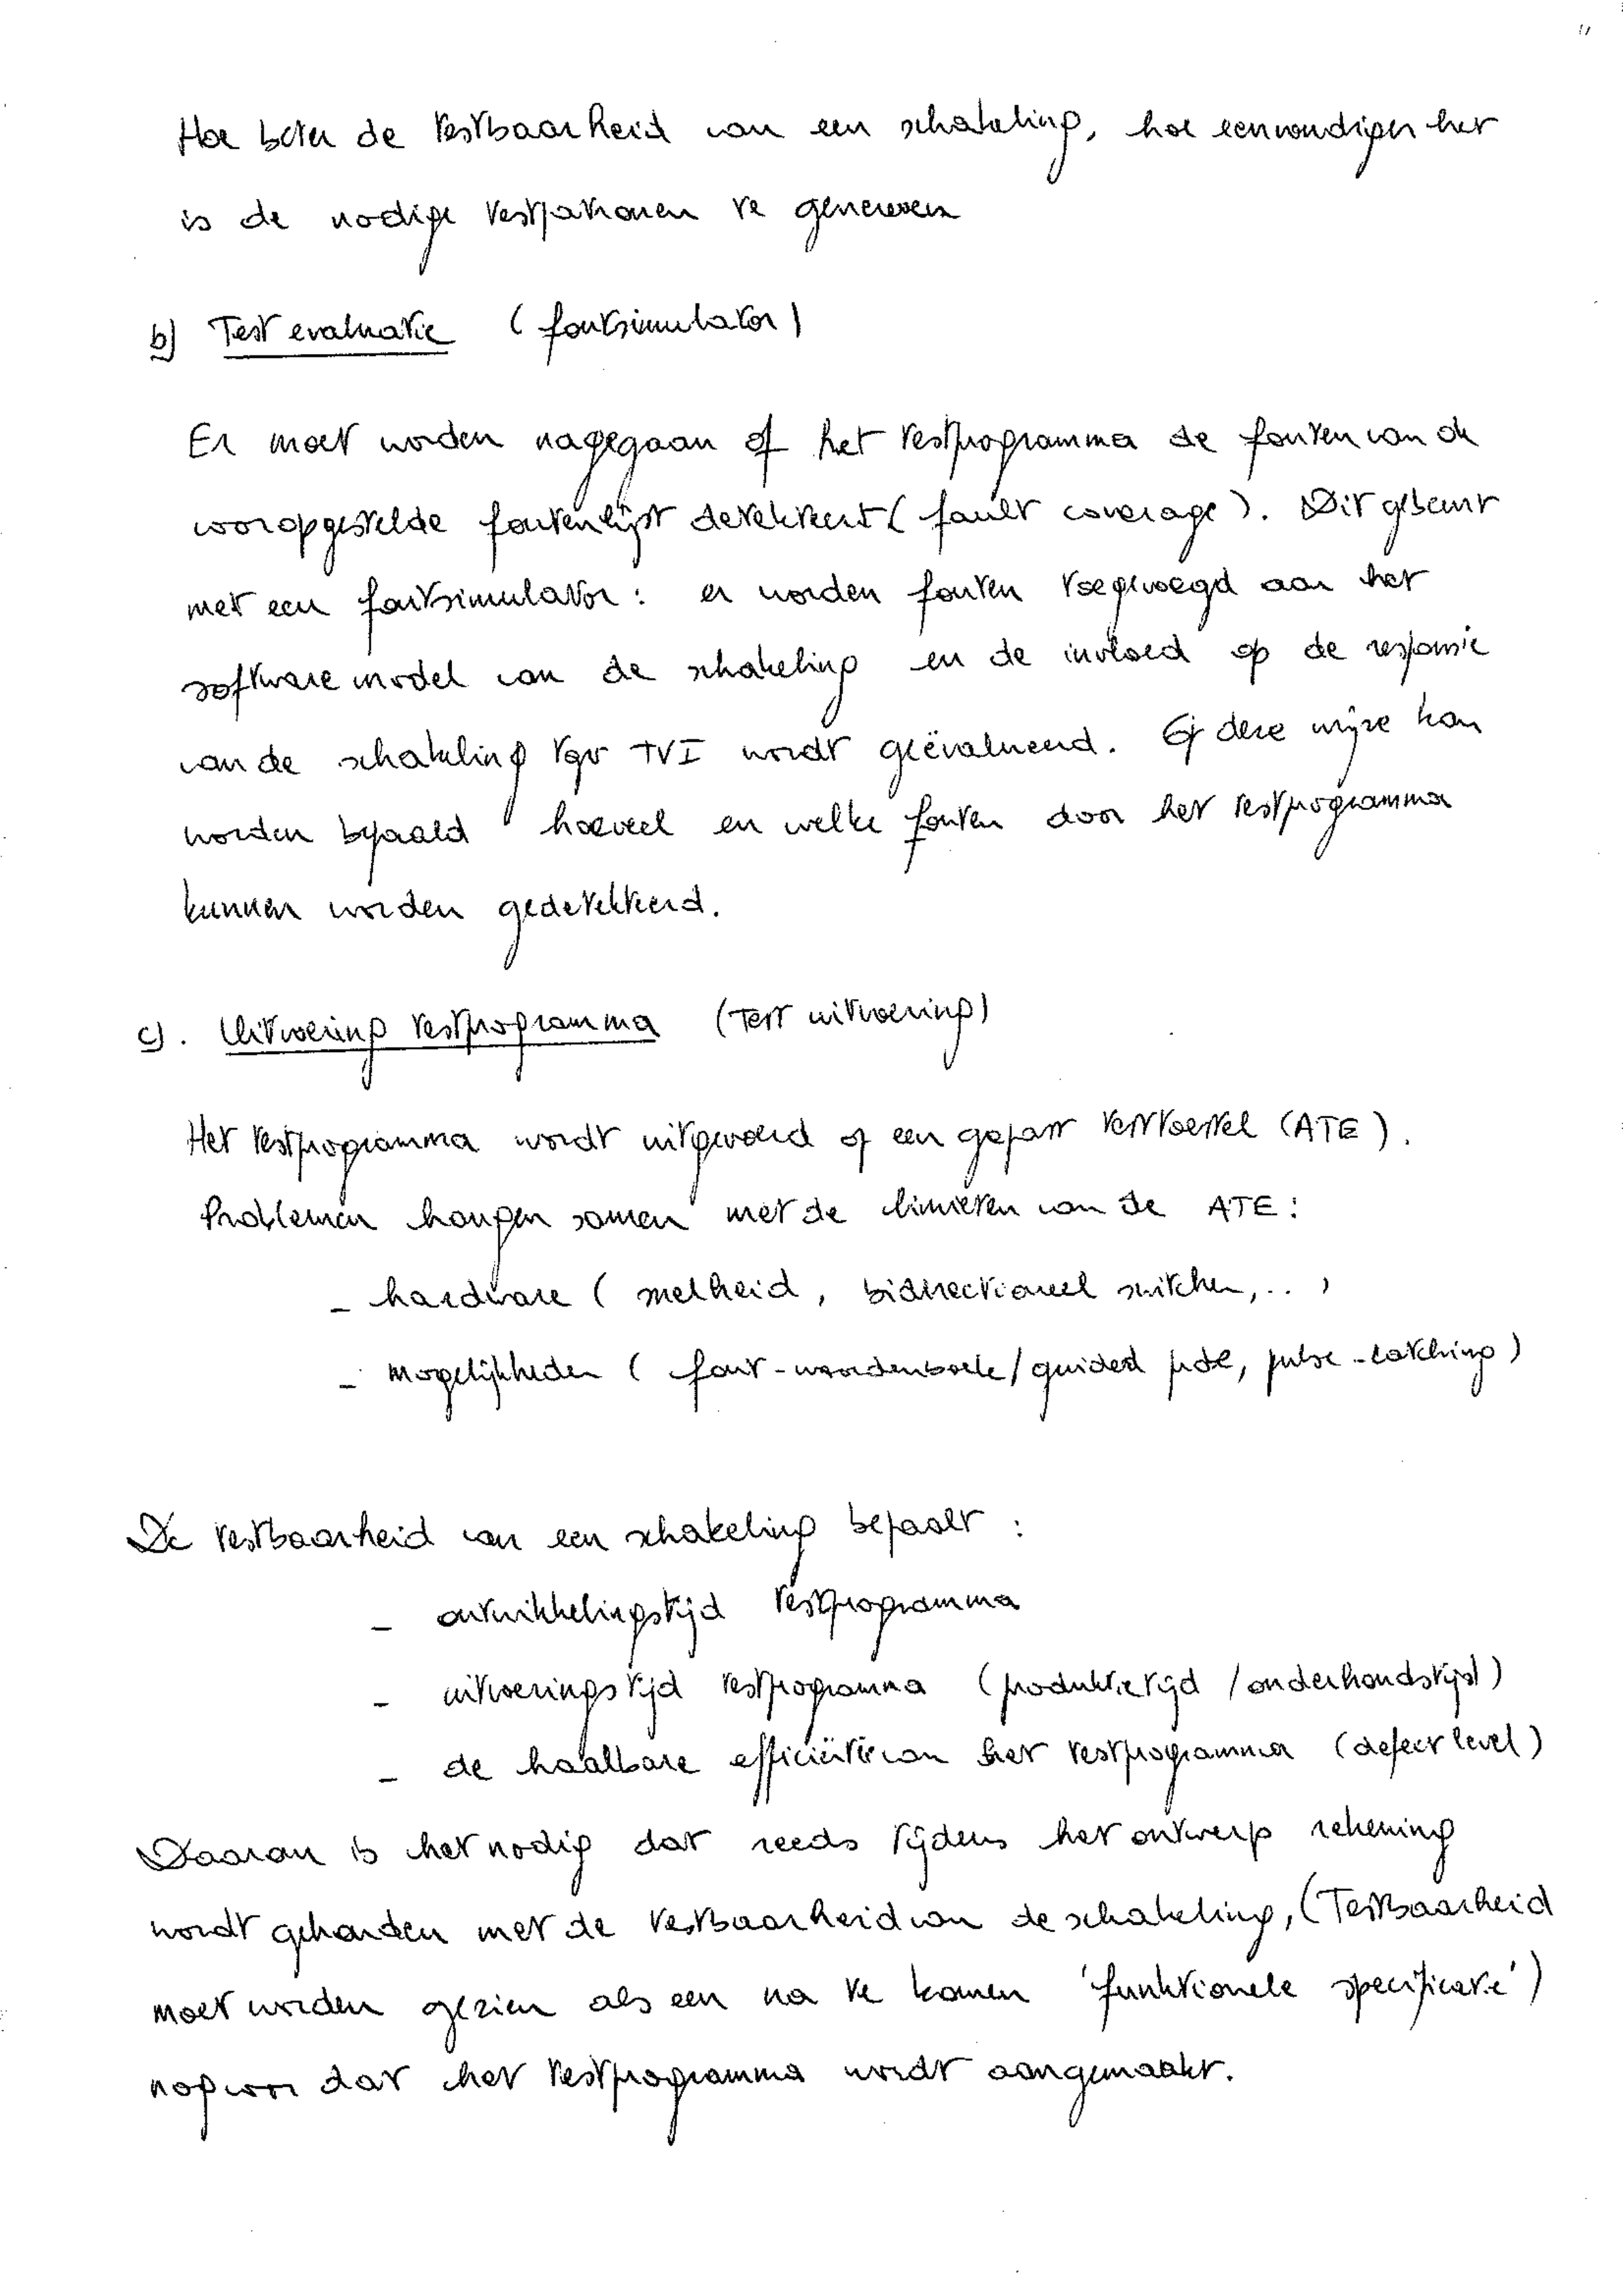 Hoe beter de testbaarheid van een schakeling, hoe eenvoudiger het
is de nodige testpatronen te genereren
b) Test evaluatie (foutsimulator)
Er moet worden nagegaan of het testprogramma de fouten van de
vooropgestelde foutenlijst detekteert (fault coverage). Dit gebeurt
met een foutsimulator: er worden fouten toegevoegd aan het
software model van de schakeling en de invloed op de responsie
van de schakeling tgv TVI wordt geëvalueerd. Op deze wijze kan
worden bepaald hoeveel en welke fouten door het testprogramma
kunnen worden gedetekteerd.
c). Uitvoering testprogramma (Test uitvoering)
Het testprogramma wordt uitgevoerd op een gepast testtoestel (ATE).
Problemen hangen samen met de limieten van de ATE:
- hardware (snelheid, bidirectioneel switchen,.. )
- mogelijkheden (fout-woordenboek/guided probe, pulse-catching)
De testbaarheid van een schakeling bepaalt :
- ontwikkelingstijd testprogramma
- uitvoeringstijd testprogramma (produktietijd / onderhoudstijd)
- de haalbare efficiëntie van het testprogramma (defect level)
Daarom is het nodig dat reeds tijdens het ontwerp rekening
wordt gehouden met de testbaarheid van de schakeling, (Testbaarheid
moet worden gezien als een na te komen 'funktionele specificatie')
nog voor dat het testprogramma wordt aangemaakt.